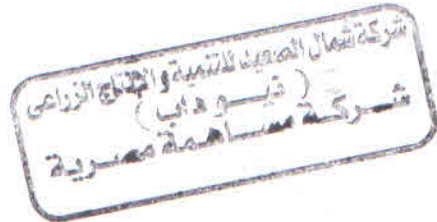 شركة شمال الصعيد للتنمية والإنتاج الزراعى
( نيوداب )
شركة مساهمة مصرية